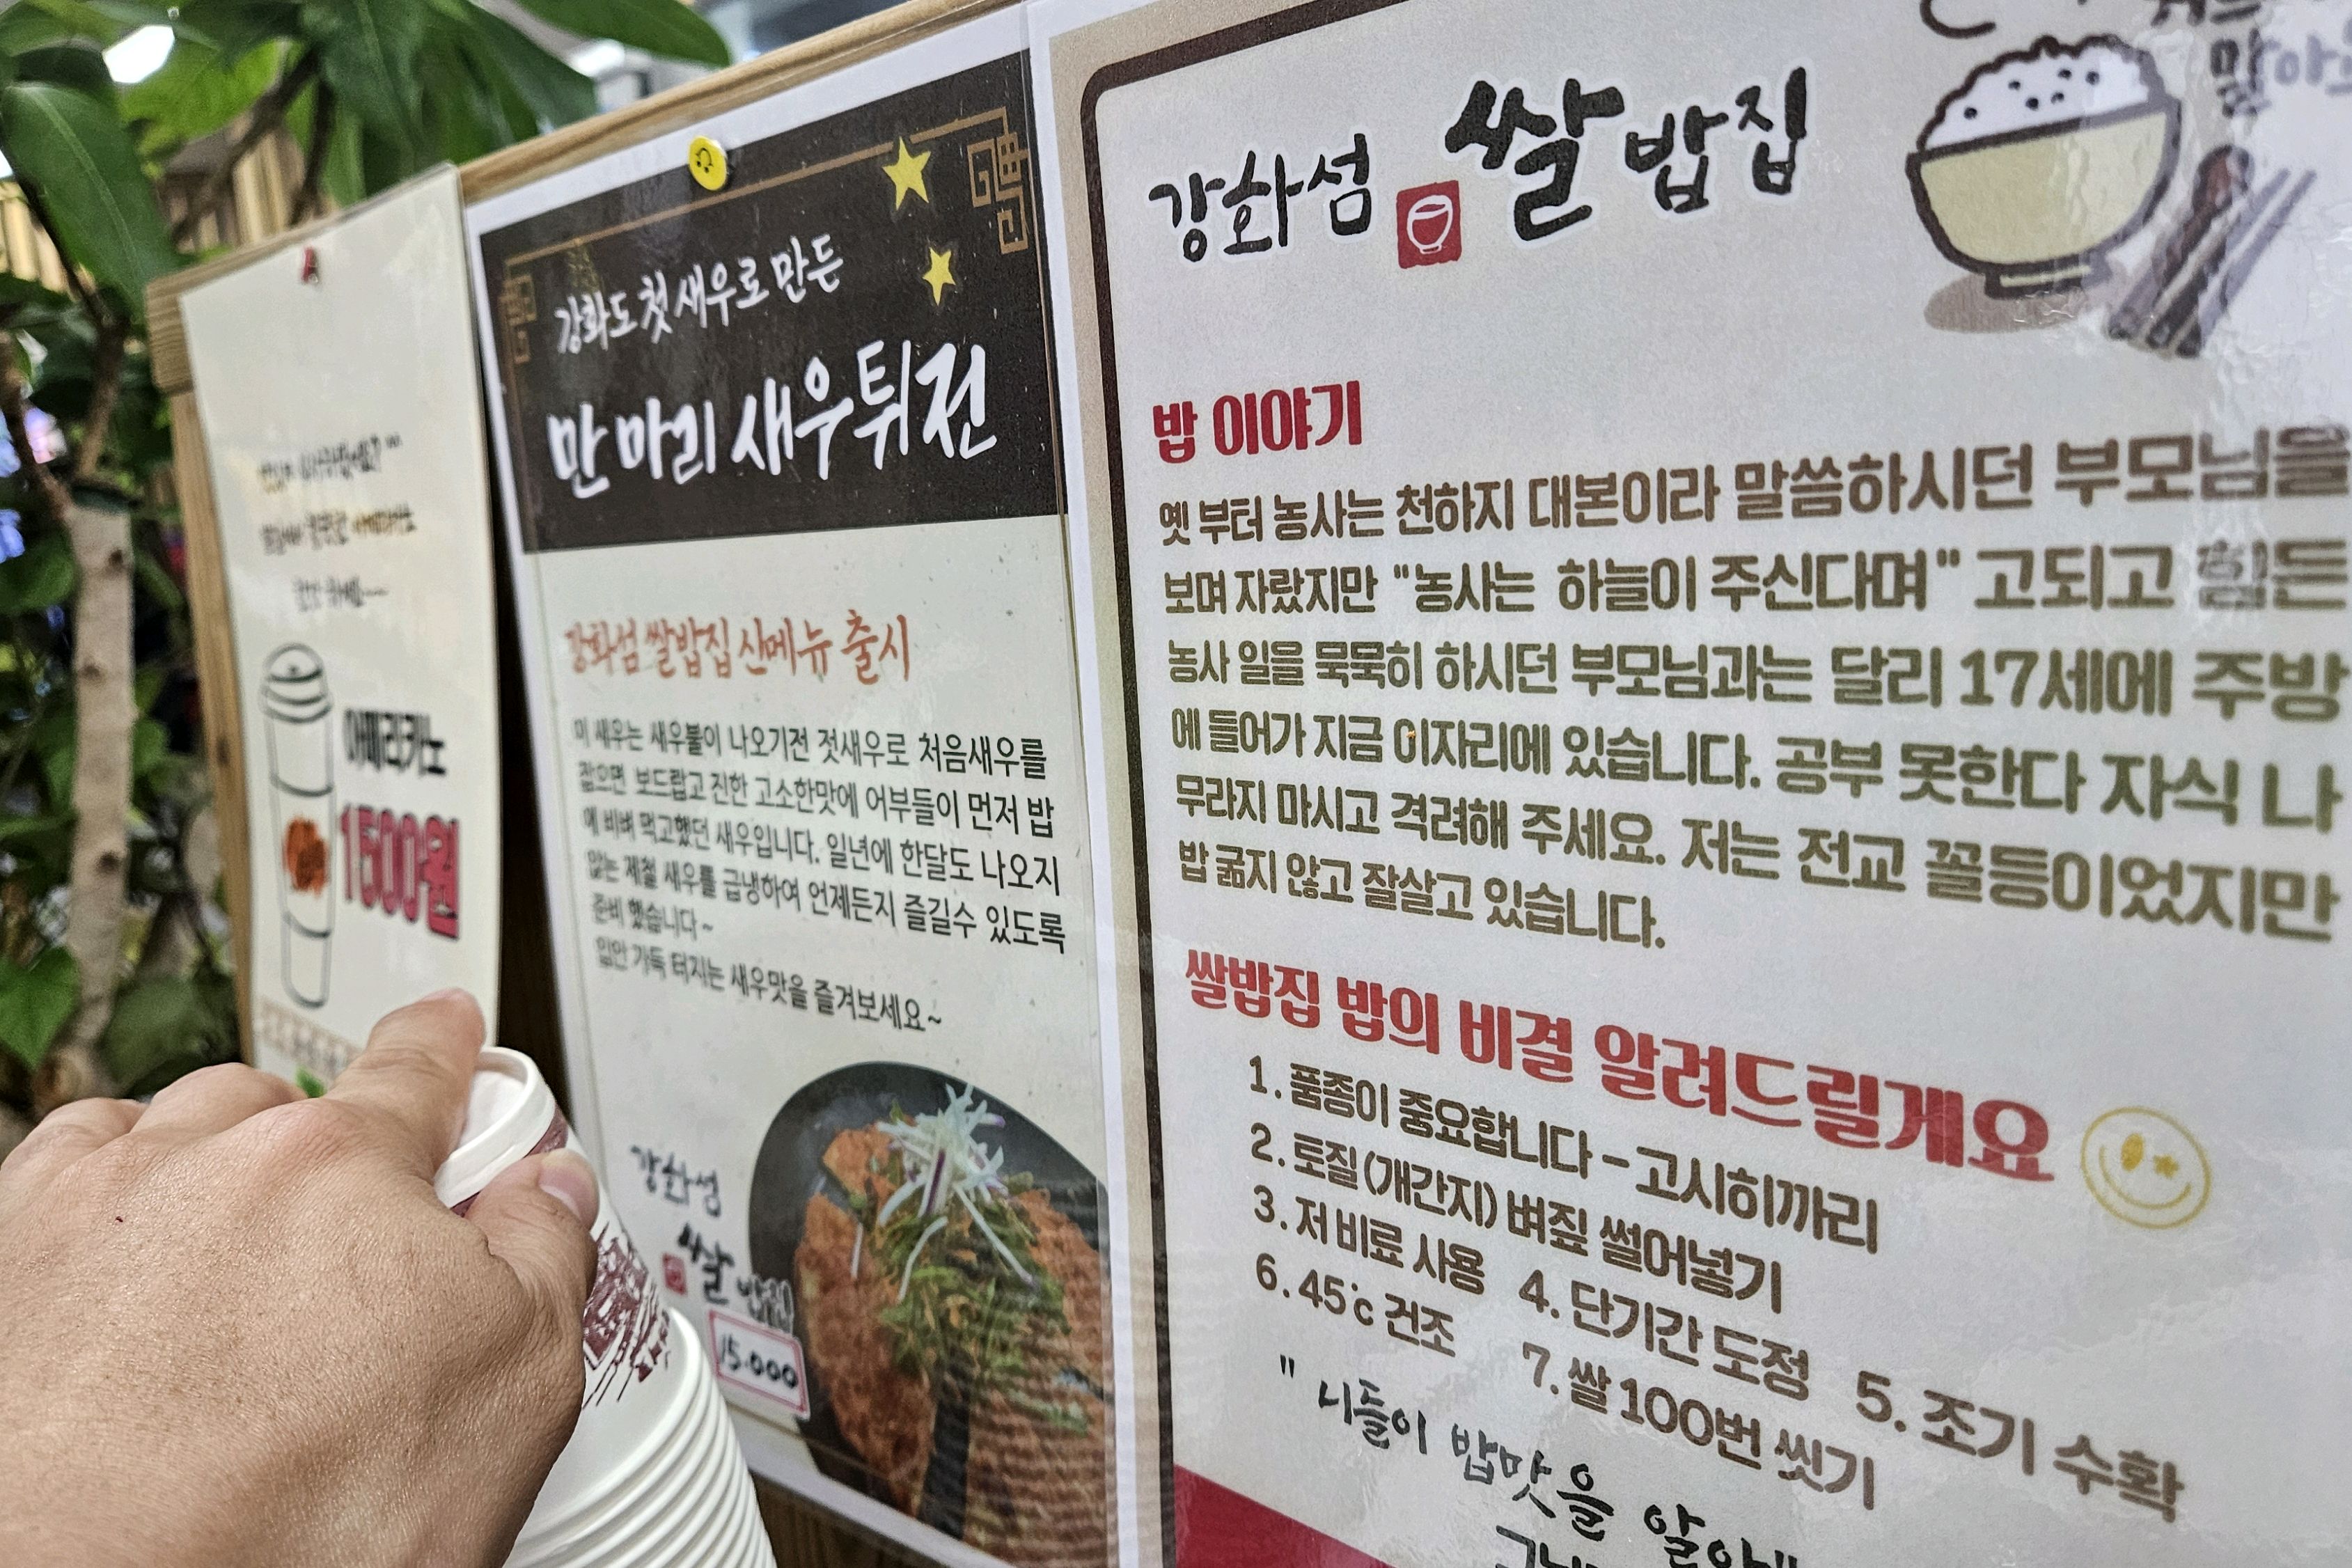 아메리카노
1500원
강화도 첫 새우로 만든
만 마리 새우튀전
강화섬 쌀밥집 신메뉴 출시
이 새우는 새우뿔이 나오기전 젓새우로 처음새우를
잡으면 보드랍고 진한 고소한맛에 어부들이 먼저 밥
에 비벼 먹고했던 새우입니다. 일년에 한달도 나오지
않는 제철 새우를 급냉하여 언제든지 즐길수 있도록
준비 했습니다~
입안 가득 터지는 새우맛을 즐겨보세요~
강화섬
쌀밥집
15.000
강화섬 쌀밥집
밥 이야기
옛 부터 농사는 천하지 대본이라 말씀하시던 부모님을
보며 자랐지만 "농사는 하늘이 주신다며" 고되고 힘든
농사 일을 묵묵히 하시던 부모님과는 달리 17세에 주방
에 들어가 지금 이자리에 있습니다. 공부 못한다 자식 나
무라지 마시고 격려해 주세요. 저는 전교 꼴등이었지만
밥 굶지 않고 잘살고 있습니다.
쌀밥집 밥의 비결 알려드릴게요
1. 품종이 중요합니다 - 고시히까리
2. 토질(개간지) 벼짚 썰어넣기
3. 저 비료 사용 4. 단기간 도정 5. 조기 수확
6. 45°c 건조 7. 쌀 100번 씻기
" 니들이 밥맛을 알아"